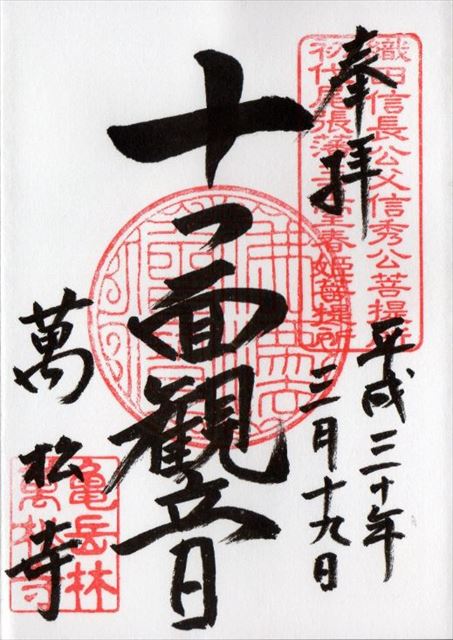 奉拝
織田信長公父信秀公菩提所
初代尾張藩主正室春姫菩提所
平成三十年
三月十九日
十一面観音
萬松寺
亀岳林
萬松寺